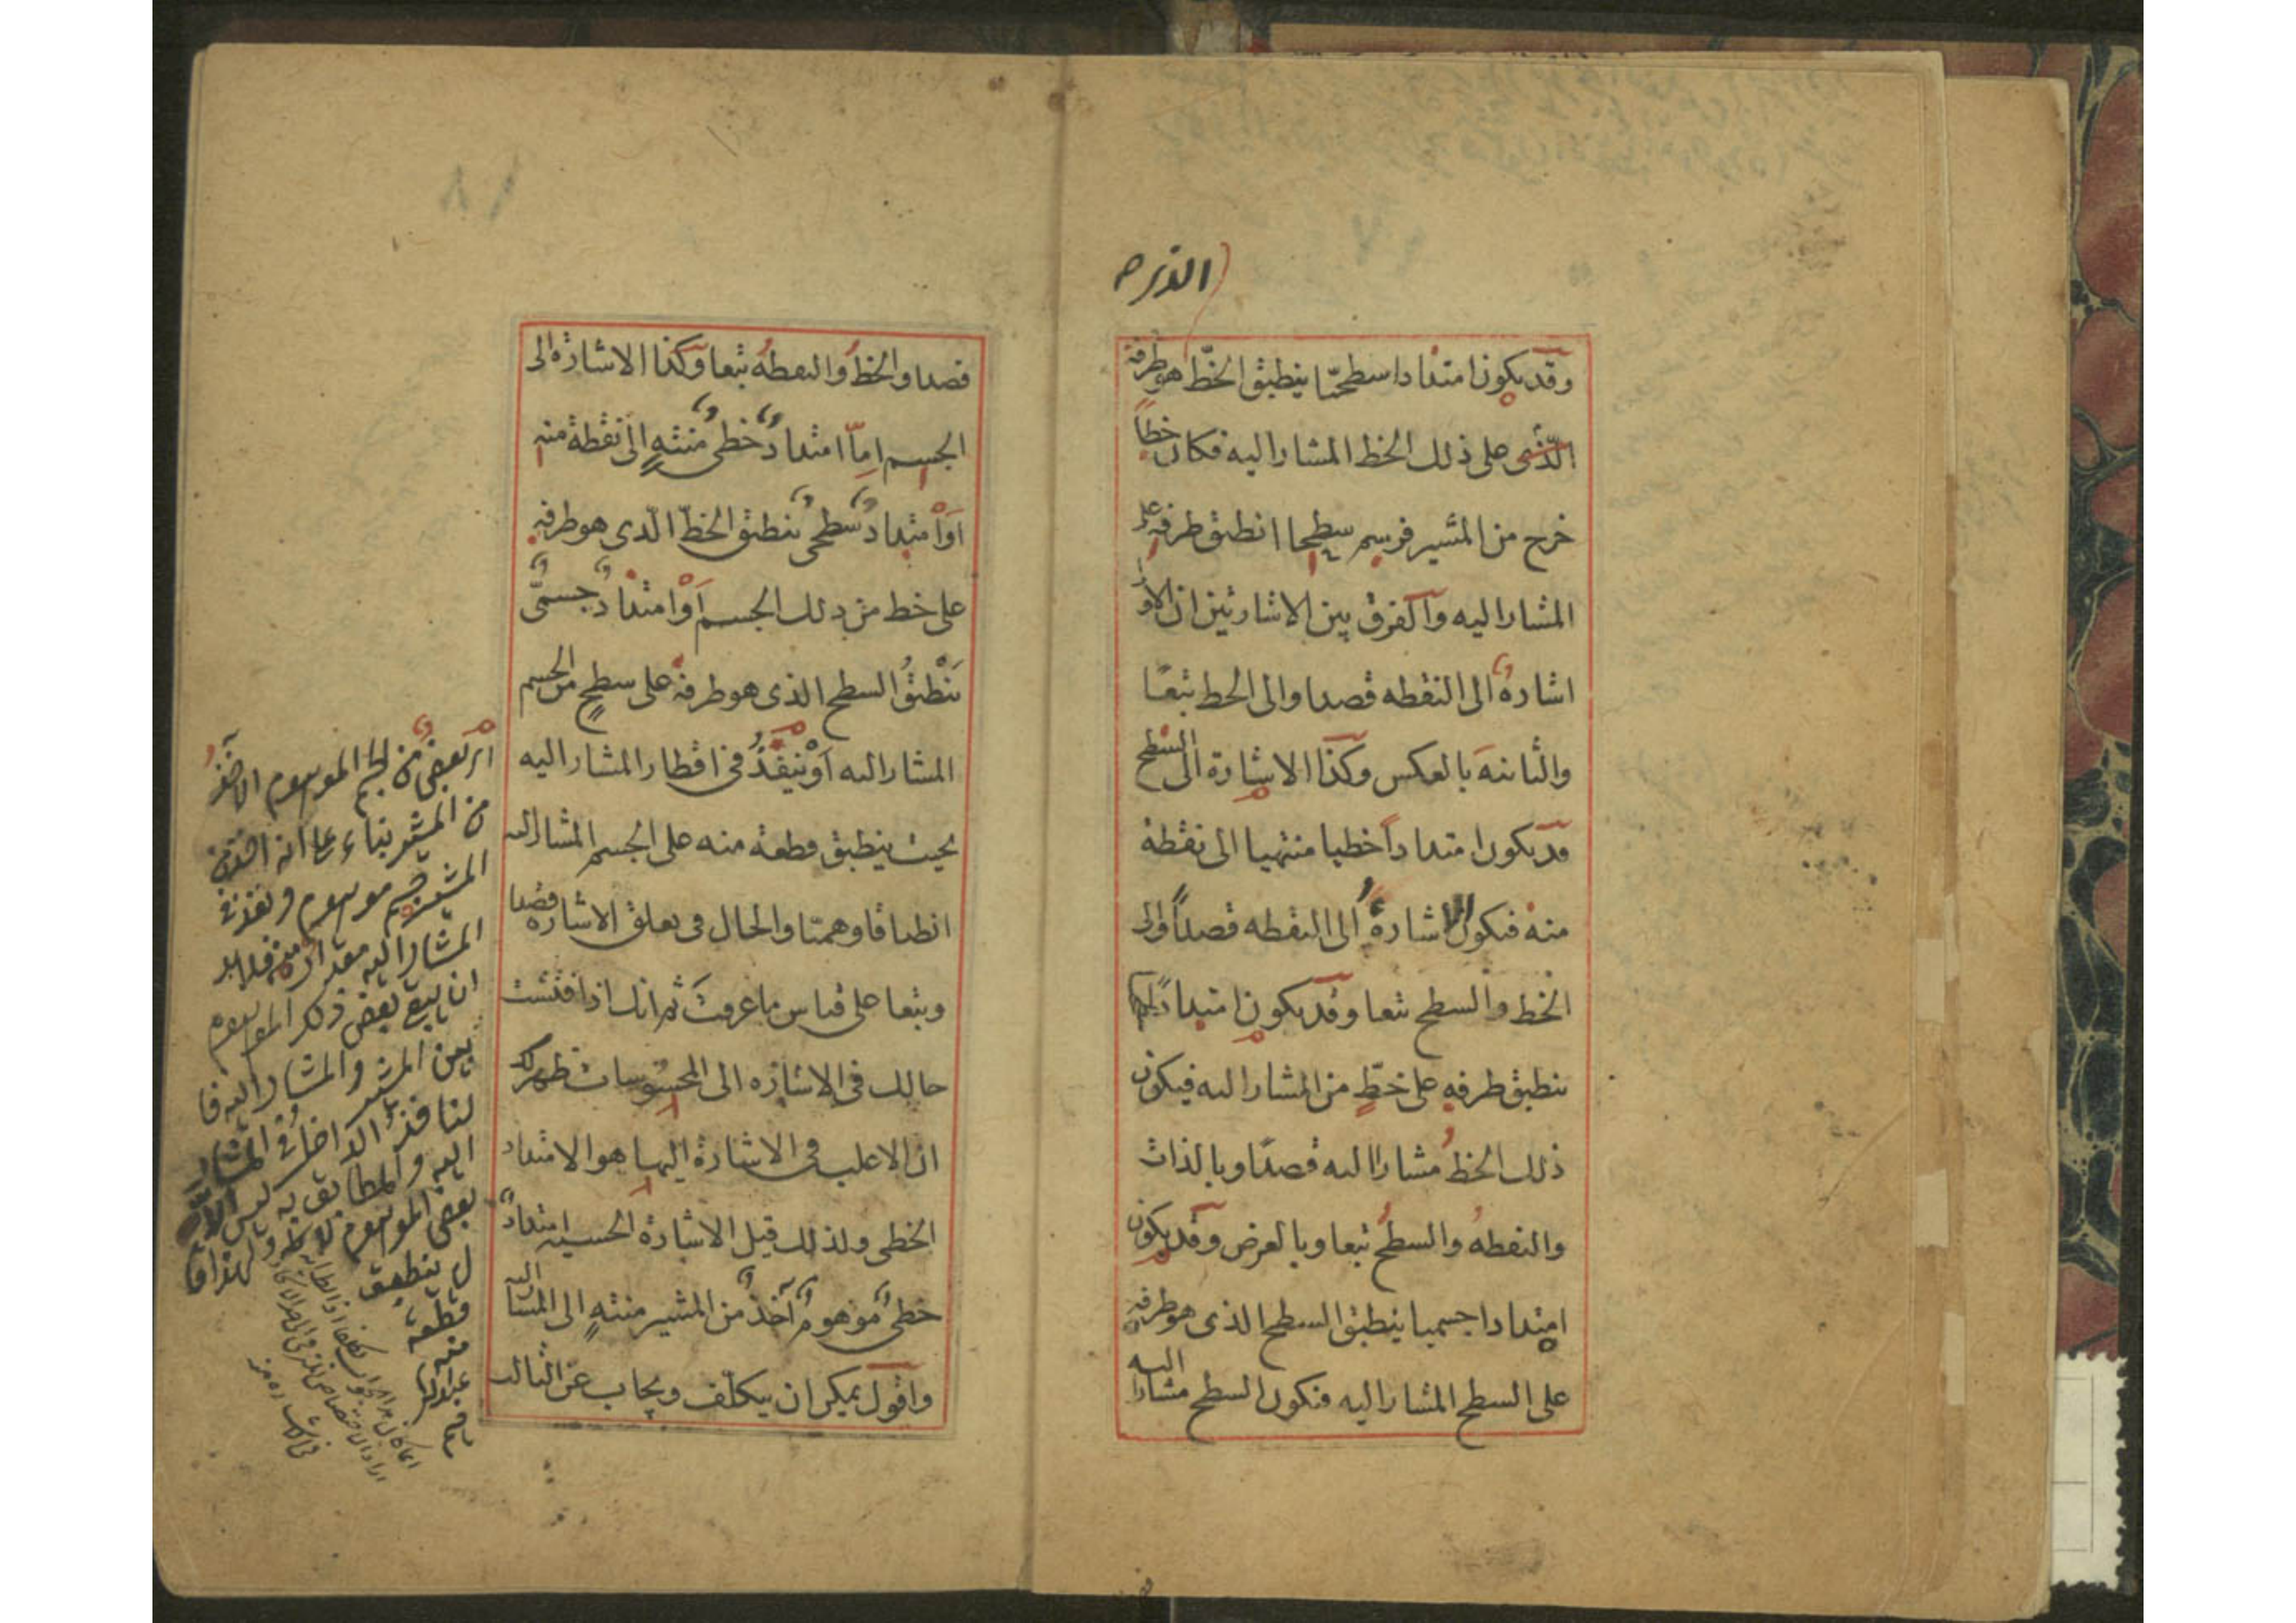 الذى هو
وقد يكون امتدادا سطحيا ينطبق الخط هو طرفه
الذى على ذلك الخط المشار اليه فكان خطا
خرج من المشير فرسم سطحا انطبق طرفه على
المشار اليه والفرق بين الاشارتين ان الاو
اشارة الى النقطه قصدا والى الخط تبعا
والثانيه بالعكس وكذا الاشارة الى السطح
قد يكون امتدادا خطيا منتهيا الى نقطة
منه فيكون الاشارة الى النقطه قصدا والى
الخط والسطح تبعا وقد يكون امتدادا
ينطبق طرفه على خط من المشار اليه فيكون
ذلك الخط مشارا اليه قصدا وبالذات
والنقطه والسطح تبعا وبالعرض وقد يكون
امتدادا جسميا ينطبق السطح الذى هو طرفه
على السطح المشار اليه فيكون السطح مشارا اليه
١٨
قصدا والخط والنقطة تبعا وكذا الاشارة الى
الجسم اما امتداد خطى منته الى نقطة منه
او امتداد سطحى ينطبق الخط الذى هو طرفه
على خط من ذلك الجسم او امتداد جسمى
ينطبق السطح الذى هو طرفه على سطح من الجسم
المشار اليه او ينفذ فى اقطار المشار اليه
بحيث ينطبق قطعة منه على الجسم المشار اليه
انطباقا وهميا والحال فى تعلق الاشارة قصدا
وتبعا على قياس ما عرفت ثم انك اذا فتشت
حالك فى الاشارة الى المحسوسات ظهر لك
ان الاغلب فى الاشارة اليها هو الامتداد
الخطى ولذلك قيل الاشارة الحسية امتداد
خطى موهوم آخذ من المشير منته الى المشار اليه
واقول يمكن ان يتكلف ويجاب عن الثالث
اى بعض من الجسم الموهوم الآخذ
من المشير بناء على انه
المشير جسم موهوم ونفذ فى
المشار اليه مقدار منه فلا بد
ان يبقى بعض ذلك الموهوم
بين المشير والمشار اليه
النافذ الداخل فى المشار
اليه والمطابق به ليس الا
بعض الموهوم
ينطبق
قطعة
منه